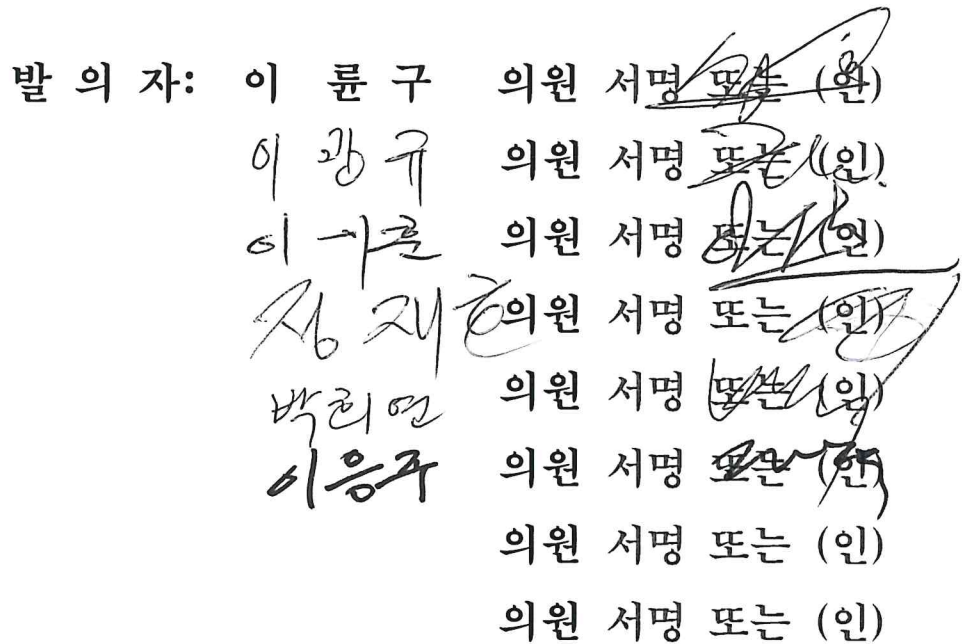 발 의 자: 이 륜 구 의원 서명 또는 (인)
이 광 규 의원 서명 또는 (인)
이 의원 서명 또는 (인)
정 재 훈 의원 서명 또는 (인)
박희연 의원 서명 또는 (인)
이응주 의원 서명 또는 (인)
의원 서명 또는 (인)
의원 서명 또는 (인)